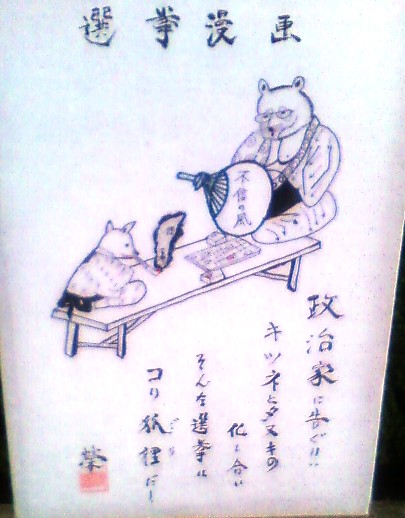 選挙漫画
不信の風
政治家に告ぐ!!
キツネとタヌキの
化し合い
そんな選挙は
コリ狐狸だ!
ごり
榮